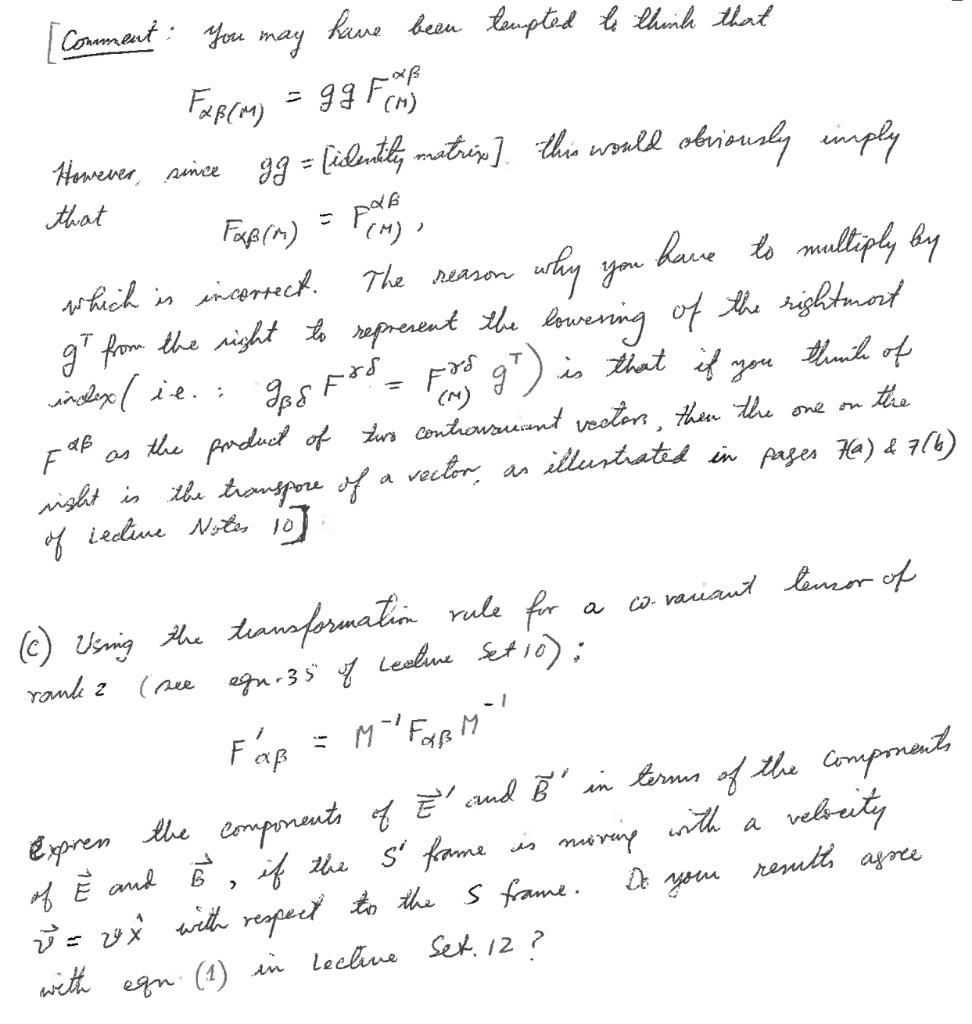 [Comment: You may have been tempted to think that
Fαβ(M) = gg F(M)^αβ
However, since gg = [identity matrix] this would obviously imply
that Fαβ(M) = F(M)^αβ,
which is incorrect. The reason why you have to multiply by
g^T from the right to represent the lowering of the rightmost
index (i.e.: gβδ F^γδ = F(M)^γδ g^T) is that if you think of
F^αβ as the product of two contravariant vectors, then the one on the
right is the transpose of a vector, as illustrated in pages 7(a) & 7(b)
of Lecture Notes 10]
(c) Using the transformation rule for a co-variant tensor of
rank 2 (see eqn. 35 of Lecture Set 10):
F'αβ = M^-1 Fαβ M^-1
Express the components of E⃗' and B⃗' in terms of the components
of E⃗ and B⃗, if the S' frame is moving with a velocity
v⃗ = v x̂ with respect to the S frame. Do your results agree
with eqn. (1) in Lecture Set. 12?